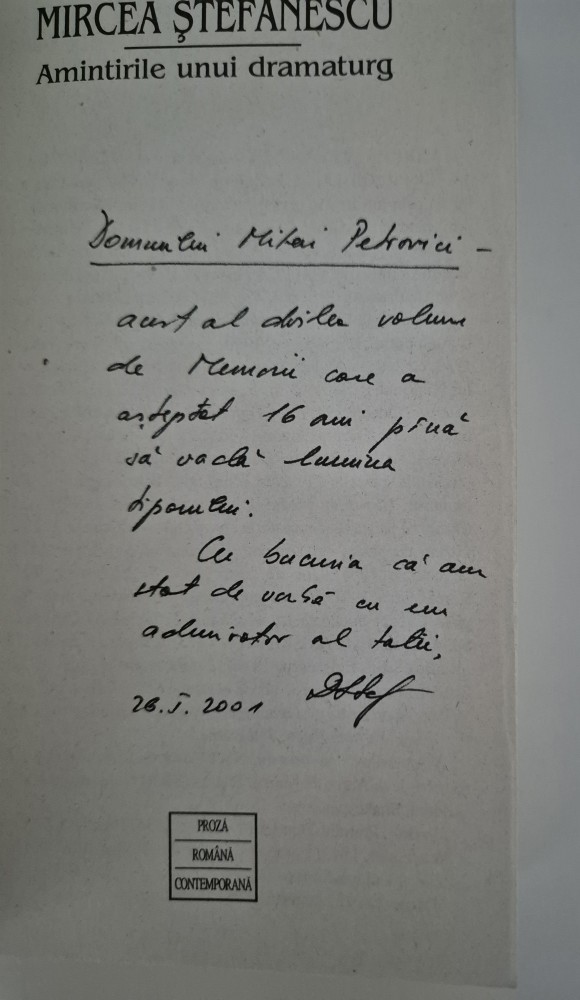 MIRCEA ŞTEFĂNESCU
Amintirile unui dramaturg
Domnului Mihai Petrovici –
acest al doilea volum
de Memorii care a
aşteptat 16 ani pînă
să vadă lumina
tiparului.
Cu bucuria că am
stat de vorbă cu un
admirator al tatii,
26.I.2001
PROZĂ
ROMÂNĂ
CONTEMPORANĂ